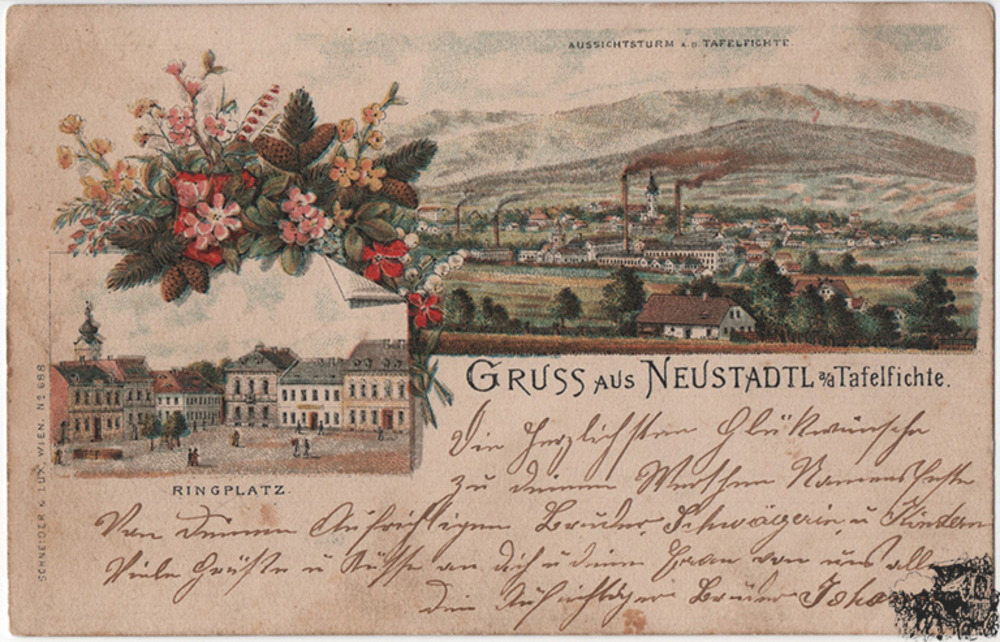 AUSSICHTSTURM A.D. TAFELFICHTE
GRUSS AUS NEUSTADTL a/d Tafelfichte.
RINGPLATZ.
SCHNEIDER & LUX, WIEN. No 688
Die Herzlichsten Glükwünsche
zu deinem Werthen Namensfeste
Von deinem Aufrichtigen Bruder Schwägerin u Kindern
Viele Grüße u Küsse an dich u deine Frau von uns alle
dein Aufrichtiger Bruder